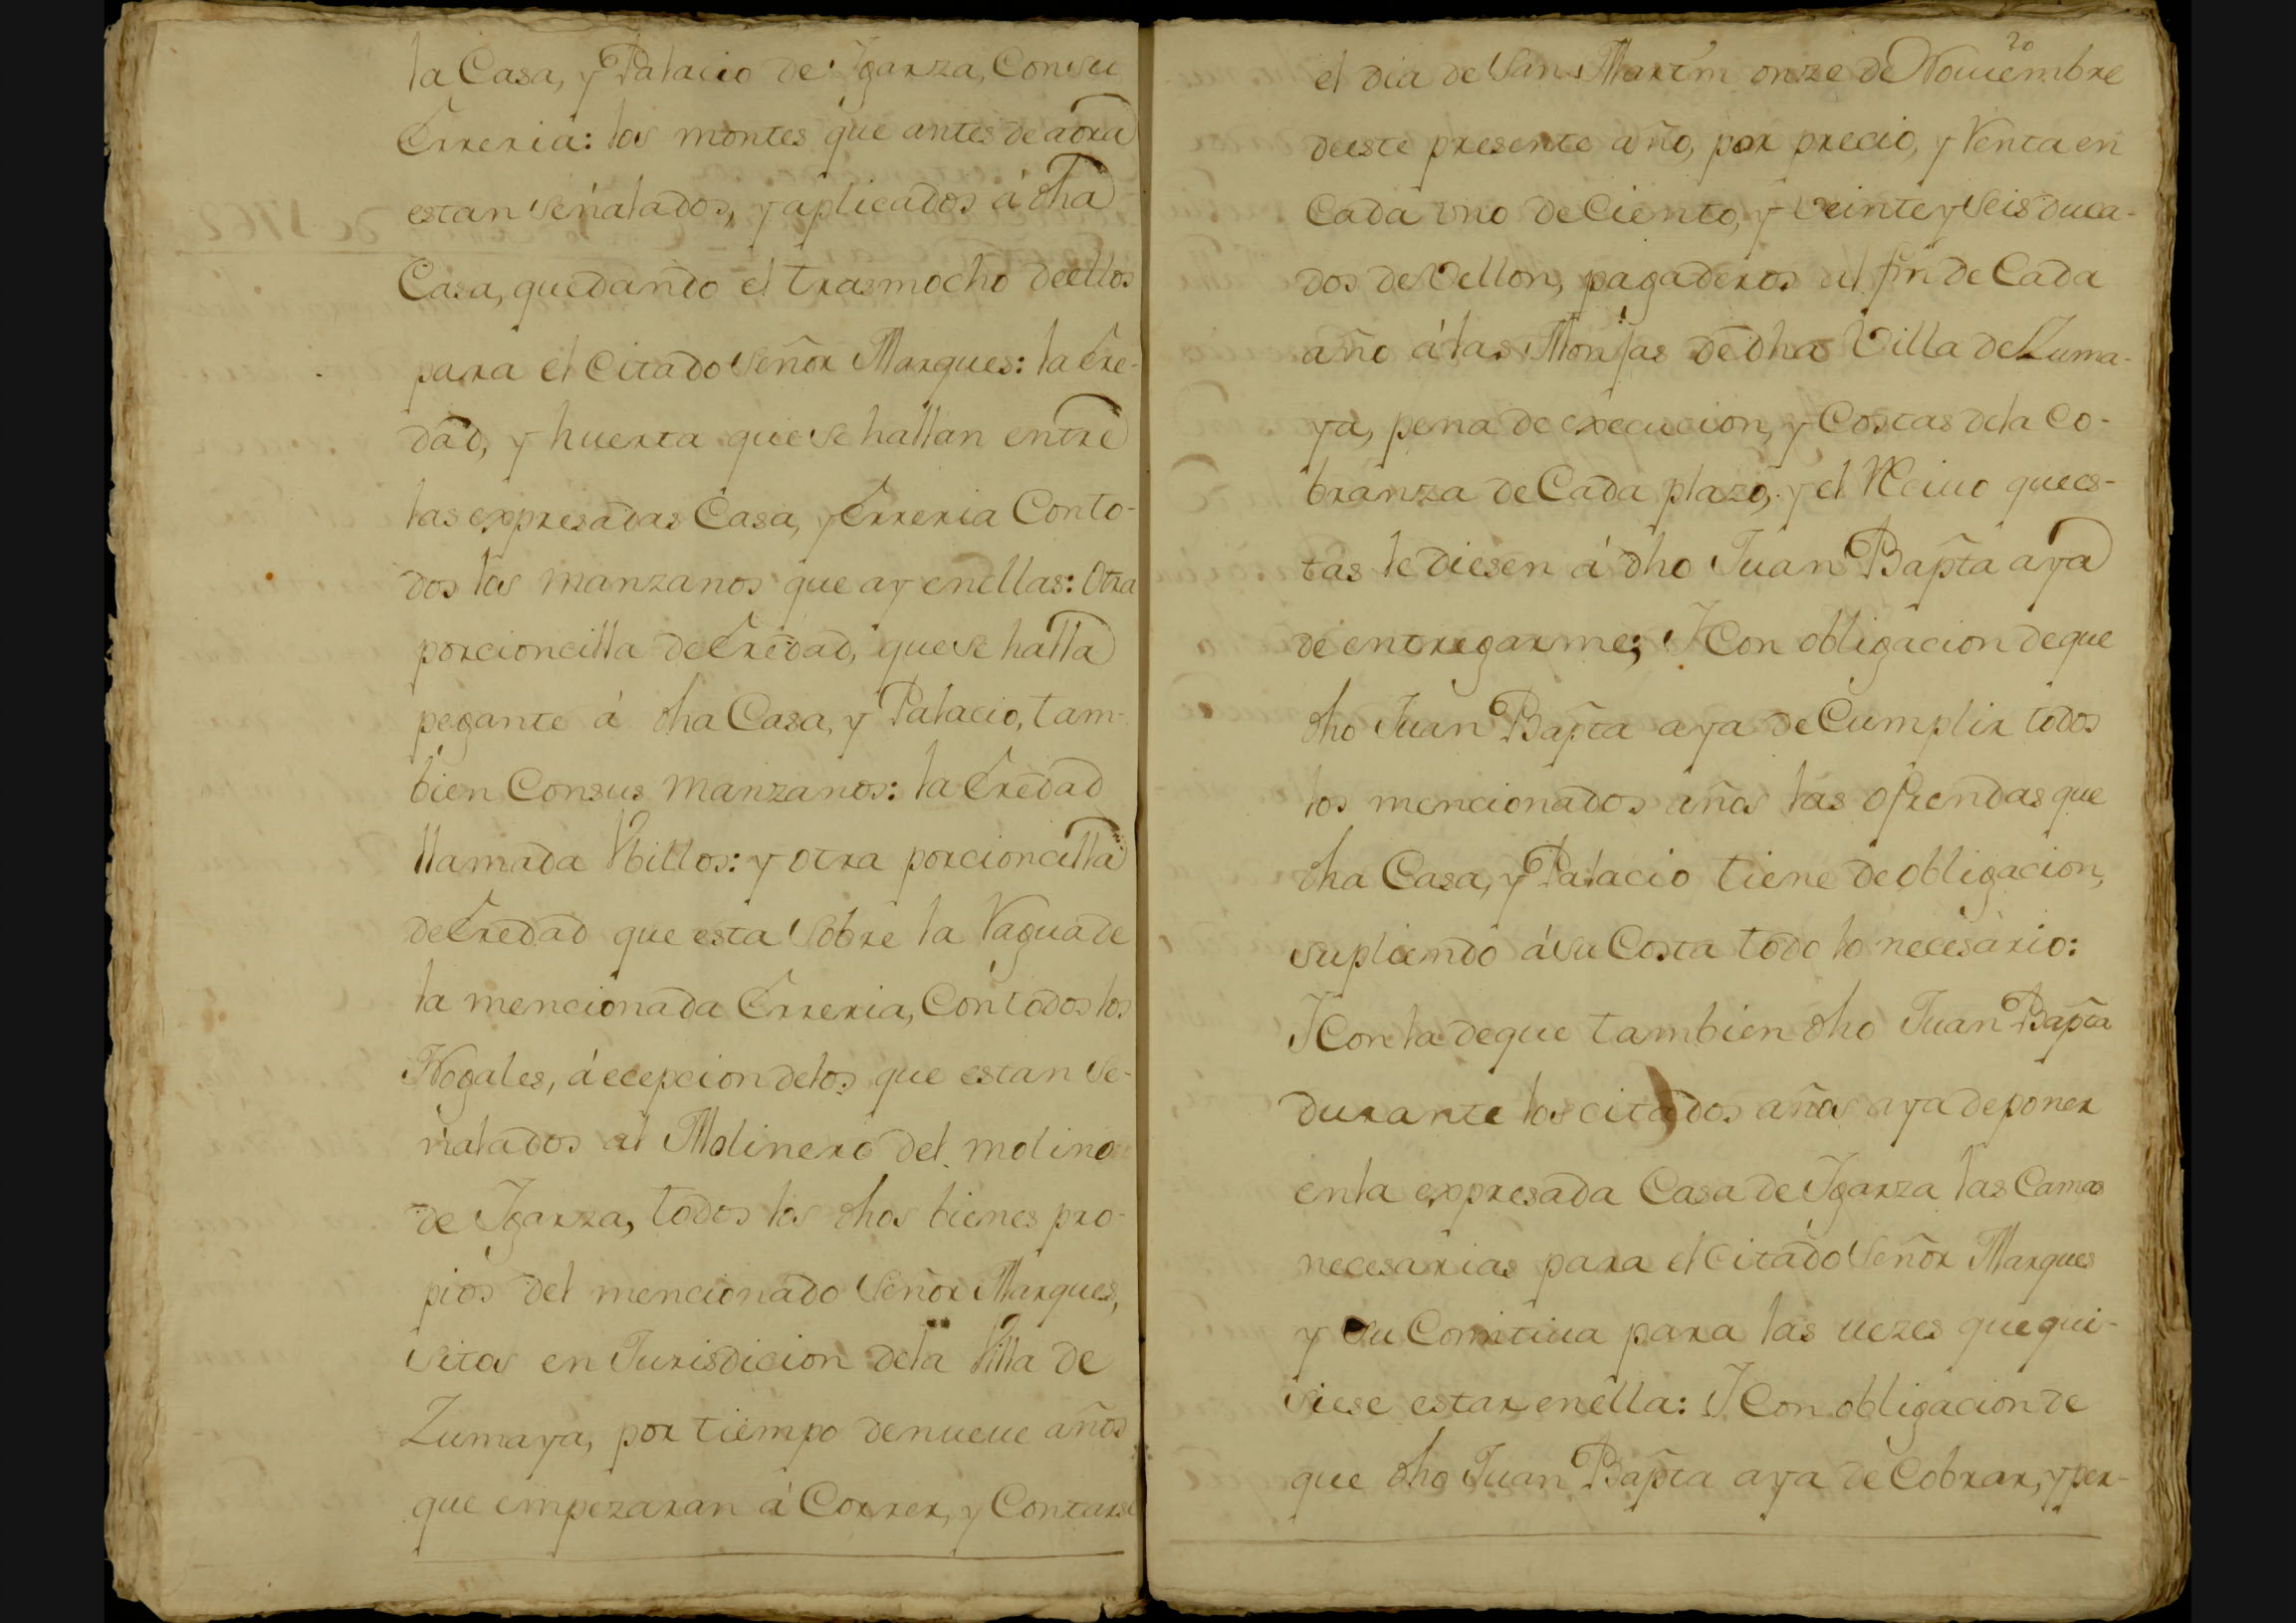 la Casa, y Palacio de Ygarza, Con su
Erreria: los montes que antes de aora
estan señalados, y aplicados á dha
Casa, quedando el trasmocho deellos
para el Citado Señor Marques: la Ere-
dad, y huerta que se hallan entre
las expresadas Casa, y Erreria Conto-
dos los manzanos que ay enellas: Otra
porcioncilla de Eredad, que se halla
pegante á dha Casa, y Palacio, tam-
bien Consus manzanos: la Eredad
llamada Ybillos: y otra porcioncilla
de Eredad que esta Sobre la Vagua de
la mencionada Erreria, Con todos los
Nogales, á ecepcion delos que estan Se-
ñalados al Molinero del molino
de Ygarza, todos los dhos bienes pro-
pios del mencionado Señor Marques,
sitos en Jurisdicion dela Villa de
Zumaya, por tiempo denueue años
que empezaran á Correr, y Contarse
20
el dia de San Martin onze de Nouiembre
deeste presente año, por precio, y Renta en
Cada uno de Ciento, y Veinte y Seis duca-
dos de Vellon, pagaderos al fin de Cada
año á las Monjas de dha Villa de Zuma-
ya, pena de execucion, y Costas dela Co-
branza de Cada plazo, y el Reciuo quees-
tas le diesen á dho Juan Bapta aya
de entregarme; Y Con obligacion deque
dho Juan Bapta aya de Cumplir todos
los mencionados años las ofrendas que
dha Casa, y Palacio tiene de obligacion,
supliendo á su Costa todo lo necesario:
Y Con la deque tambien dho Juan Bapta
durante los citados años aya deponer
enla expresada Casa de Ygarza las Camas
necesarias para el Citado Señor Marques
y Su Comitiua para las uezes que qui-
siese estar enella: Y Con obligacion de
que dho Juan Bapta aya de Cobrar, y per-